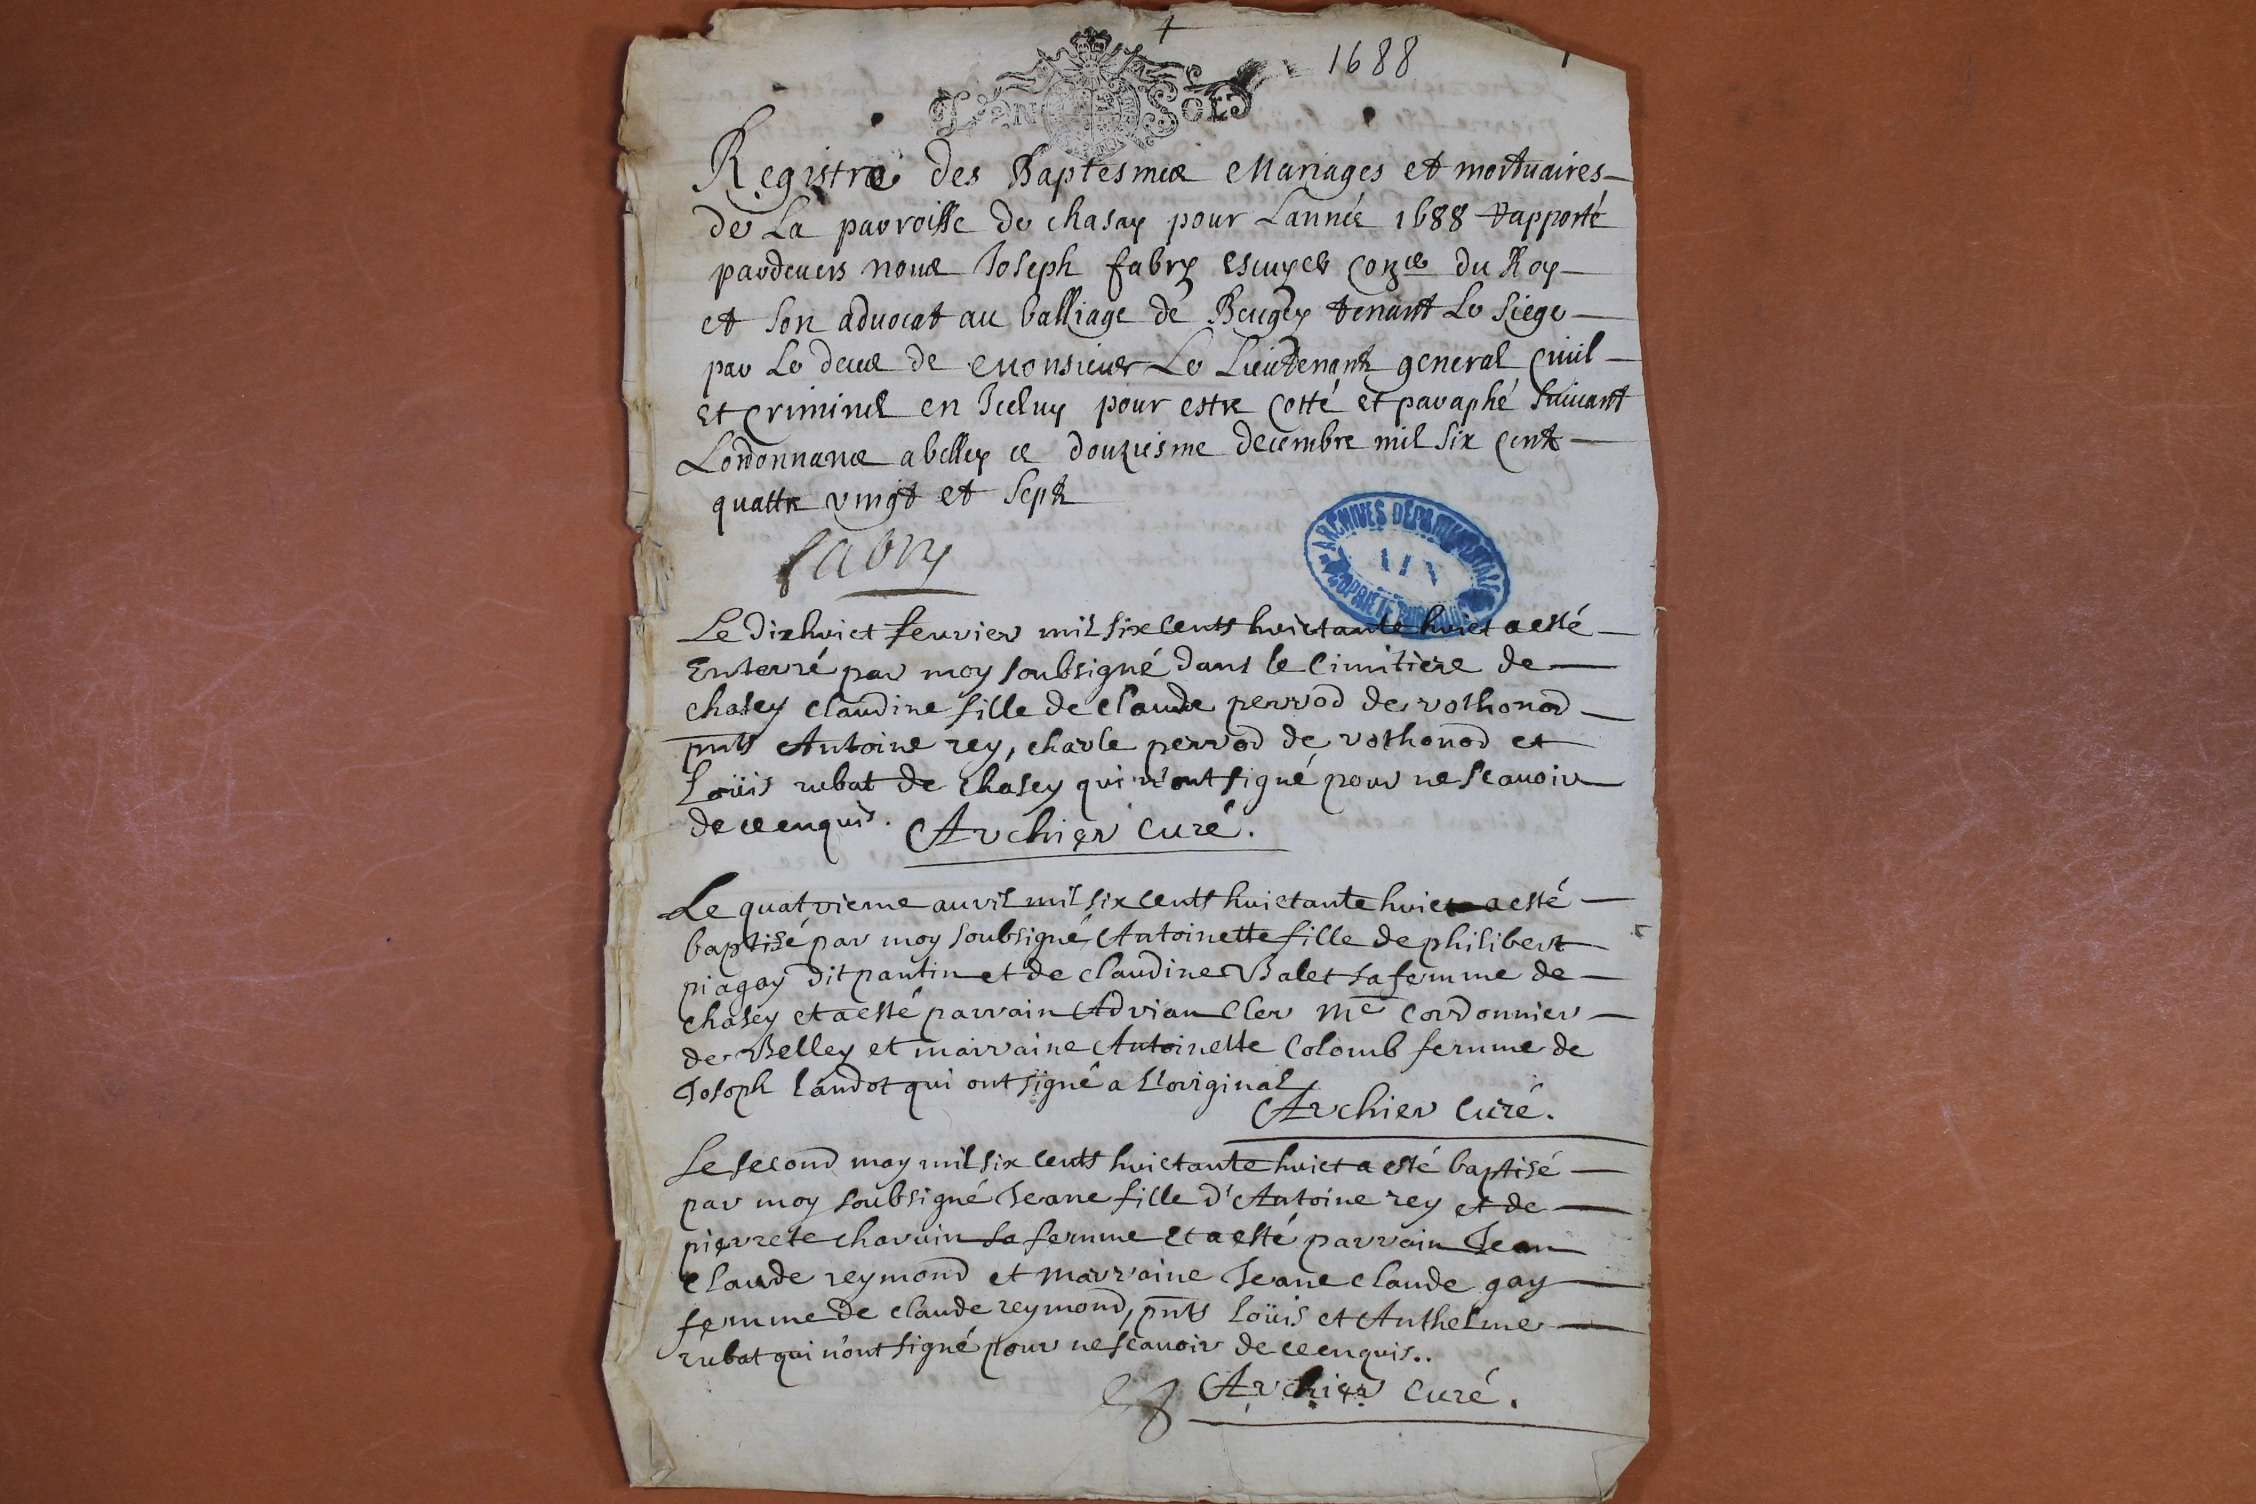 1688
UN SOL
Registre des Baptesmes Mariages et mortuaires
de La parroisse de chasay pour Lannée 1688 rapporté
pardevers nous Joseph fabry escuyer Coner du Roy
et son advocat au balliage de Beugey tenant Le siege
par Le deces de Monsieur Le Lieutenant general Civil
et Criminel en Iceluy pour estre Cotté et paraphé suivant
Lordonnance a belley ce douziesme decembre mil six cent
quattre vingt et sept
fabry
ARCHIVES DÉPARTEMENTALES
AIN
PROPRIÉTÉ PUBLIQUE
Le dixhuict feuvrier mil six cents huictante huict a esté
Enterré par moy soubsigné dans le Cimitiere de
chasey claudine fille de claude perrod de rothonod
pnts Antoine rey, charle perrod de rothonod et
Loüis rubat de chasey qui n'ont signé pour ne scavoir
de ce enquis. Archier curé.
Le quatrieme auvril mil six cents huictante huict a esté
baptisé par moy soubsigné Antoinette fille de philibert
piagay dit pantin et de claudine Balet sa femme de
chasey et a esté parrain Adrian Cler Me Cordonnier
de Belley et mairraine Antoinette Colomb femme de
Joseph landot qui ont signé a L'original
Archier curé.
Le second may mil six cents huictante huict a esté baptisé
par moy soubsigné Jeane fille d'Antoine rey et de
pierrete charvin sa femme et a esté parrain Jean
claude reymond et marraine Jeane claude gay
femme de claude reymond, pnts Loüis et Anthelme
rubat qui n'ont signé pour ne scavoir de ce enquis..
Archier curé.